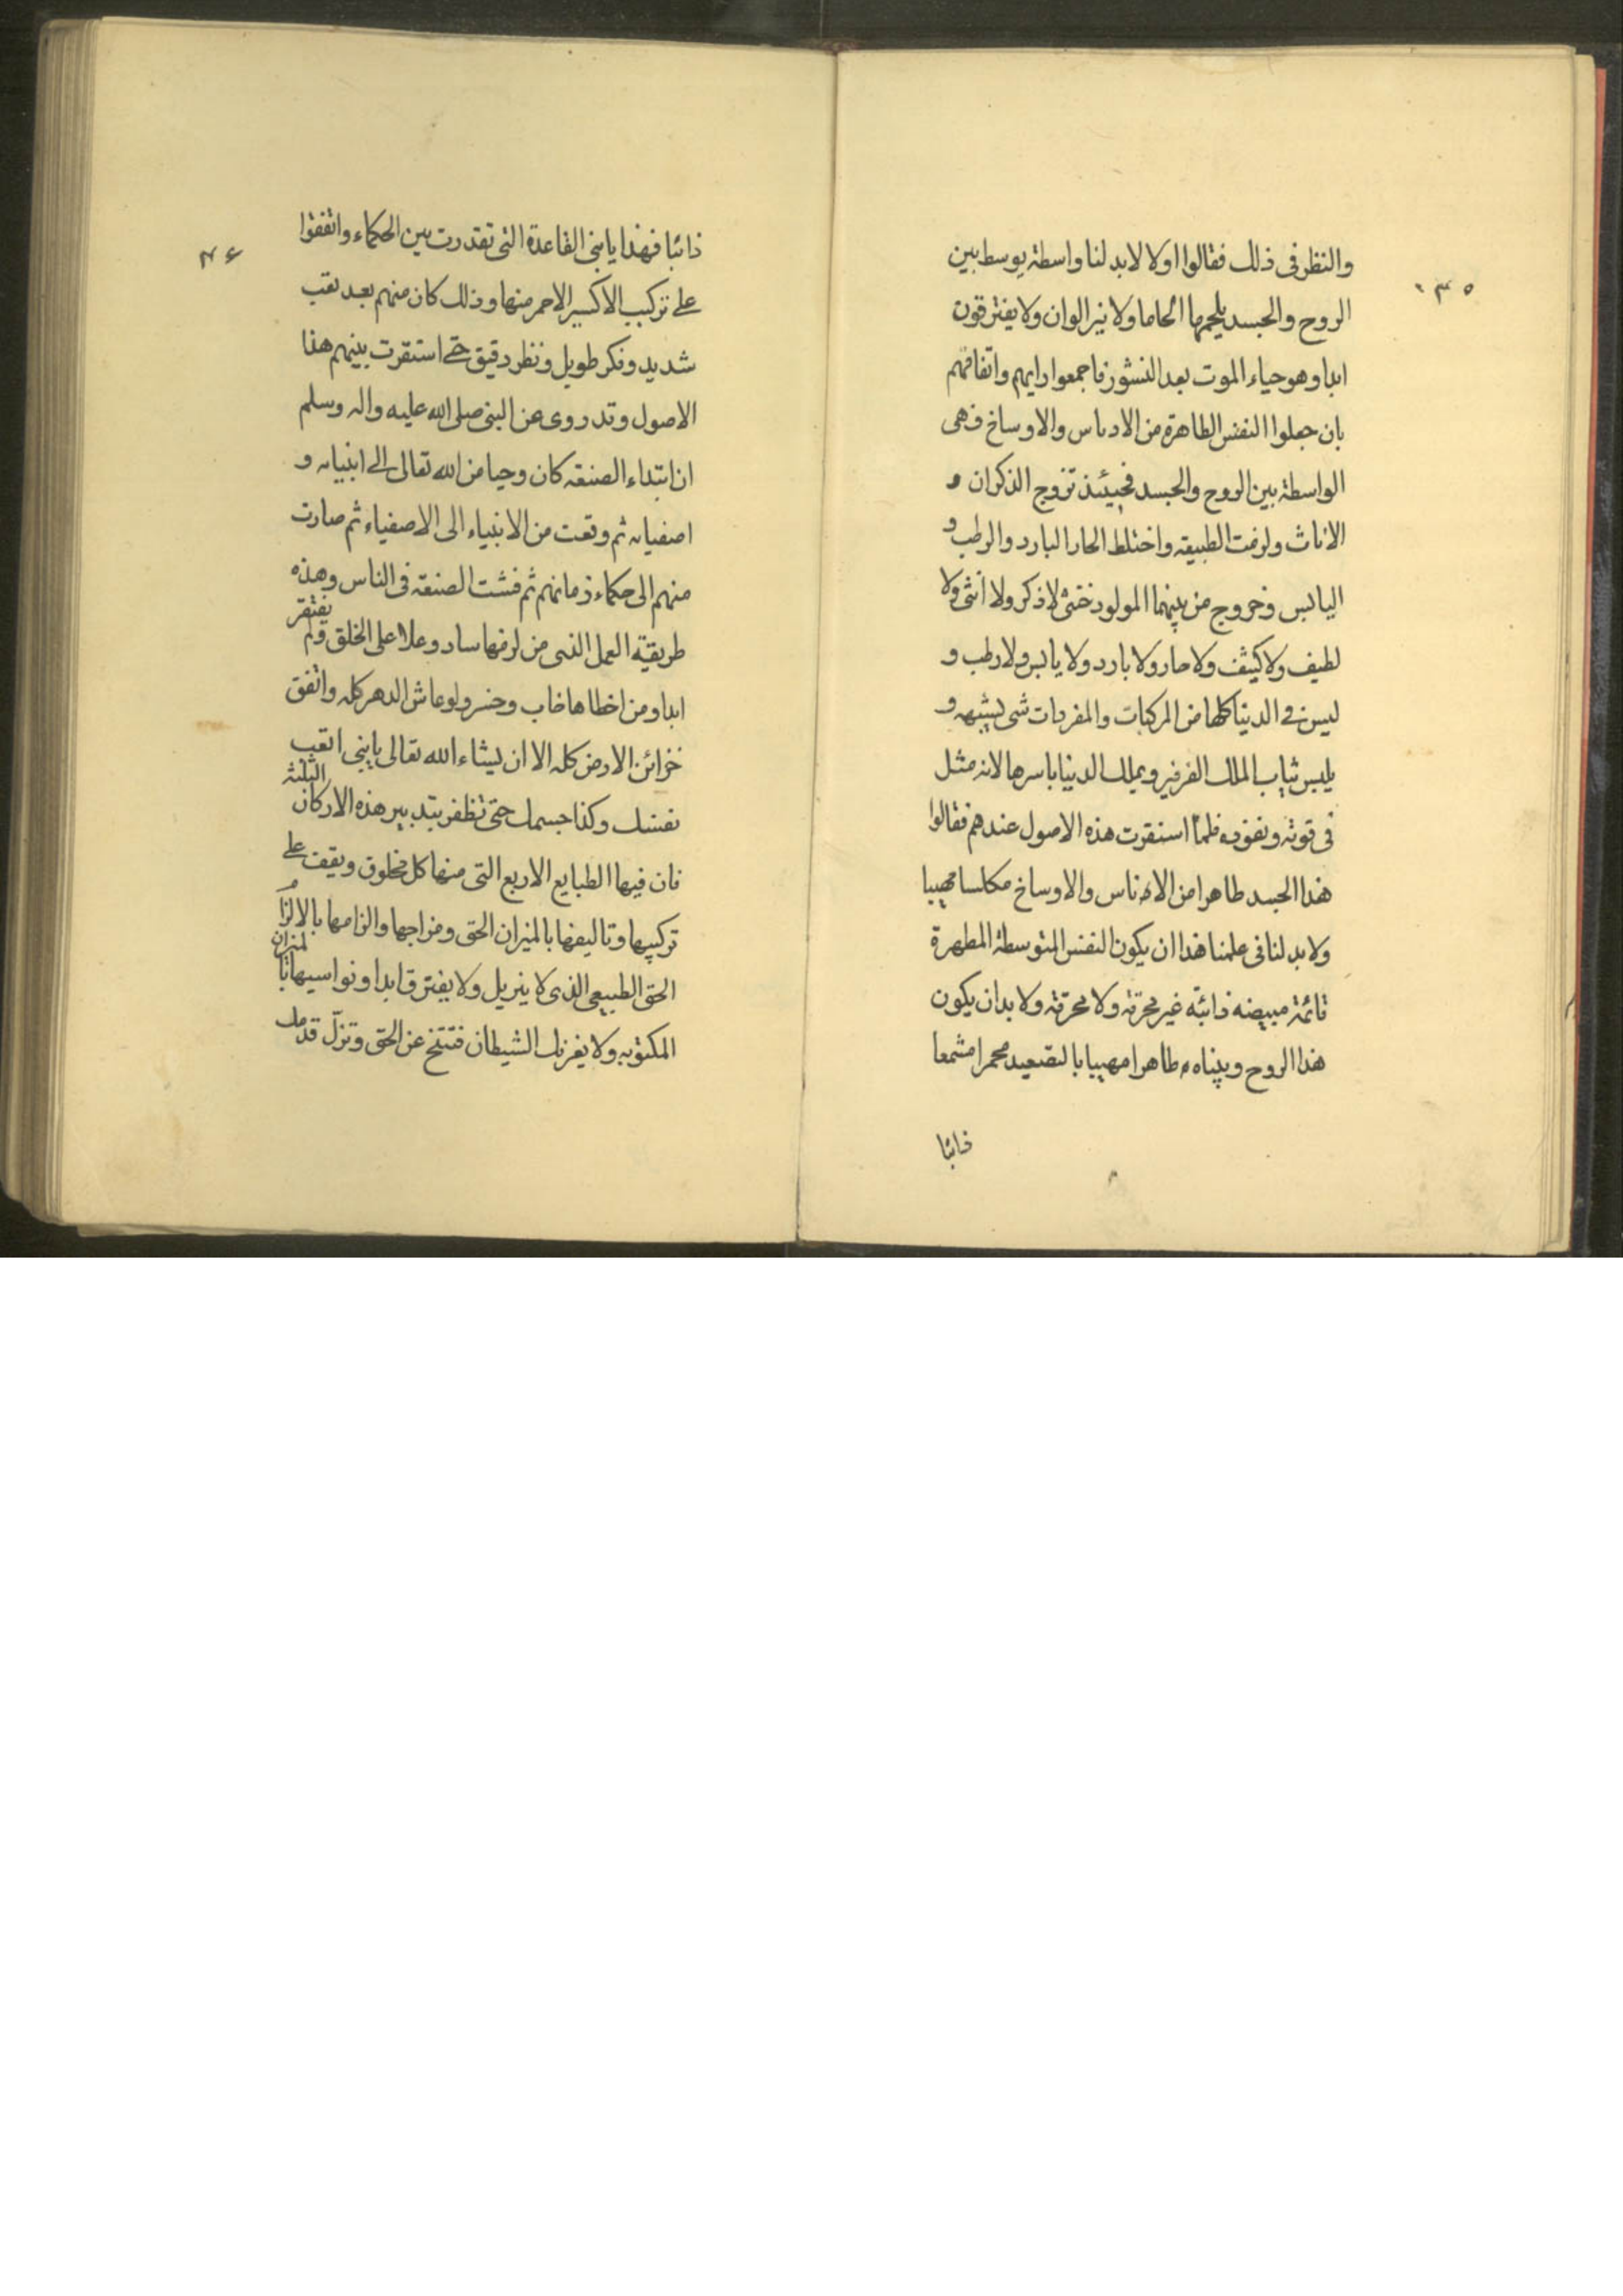 والنظر فى ذلك فقالوا اولا لابد لنا واسطة يوسط بين
الروح والجسد يلحمهما الحاما ولا نيرالوان ولا يفترقون
ابدا وهو حياء الموت بعد النشور فاجمعوا رايهم واتفاقهم
بان جعلوا النفس الطاهرة من الادناس والاوساخ فهى
الواسطة بين الروح والجسد فحينئذ تزوج الذكران و
الاناث ولزمت الطبيعة واختلط الحار البارد والرطب و
اليابس وخروج من بينهما المولود خنثى لا ذكر ولا انثى ولا
لطيف ولا كثيف ولا حار ولا بارد ولا يابس ولا رطب و
ليس فى الدنيا كلها من المركبات والمفردات شى يشبهه و
يلبس ثياب الملك الفرفير ويملك الدنيا باسرها لانه مثل
فى قوته ونفوذه فلما استقرت هذه الاصول عندهم فقالوا
هذا الجسد طاهرا من الادناس والاوساخ مكلسا مهيبا
ولا بد لنا فى علمنا هذا ان يكون النفس المتوسطة المطهرة
قائمة مبيضه ذائبة غير محرقة ولا محرقة ولا بد ان يكون
هذا الروح وبيناه طاهرا مهيبا بالتصعيد محمرا مشمعا
ذائبا
٣٥
ذائبا فهذا يا بنى القاعدة التى تقدرت بين الحكماء واتفقوا
على تركيب الاكسير الاحمر منها وذلك كان منهم بعد تعب
شديد وفكر طويل ونظر دقيق حتى استقرت بينهم هذا
الاصول وقد روى عن النبى صلى الله عليه واله وسلم
ان ابتداء الصنعة كان وحيا من الله تعالى الى انبيائه و
اصفيائه ثم وقعت من الانبياء الى الاصفياء ثم صارت
منهم الى حكماء زمانهم ثم فشت الصنعة فى الناس وهذه
طريقة العمل الذى من لزمها ساد وعلا على الخلق ولم يفتقر
ابدا ومن اخطاها خاب وخسر ولو عاش الدهر كله وانفق
خزائن الارض كله الا ان يشاء الله تعالى يا بنى اتعب
نفسك وكذا جسمك حتى تظفر بتدبير هذه الاركان الثلثة
فان فيها الطبايع الاربع التى منها كل مخلوق ويقف على
تركيبها وتاليفها بالميزان الحق ومزاجها والزامها بالالزام
الحق الطبيعى الذى لا يزيل ولا يفترق ابدا ونواسيها
المكتوبه ولا يغرنك الشيطان فتتنح عن الحق وتزل قدمك
٣٦